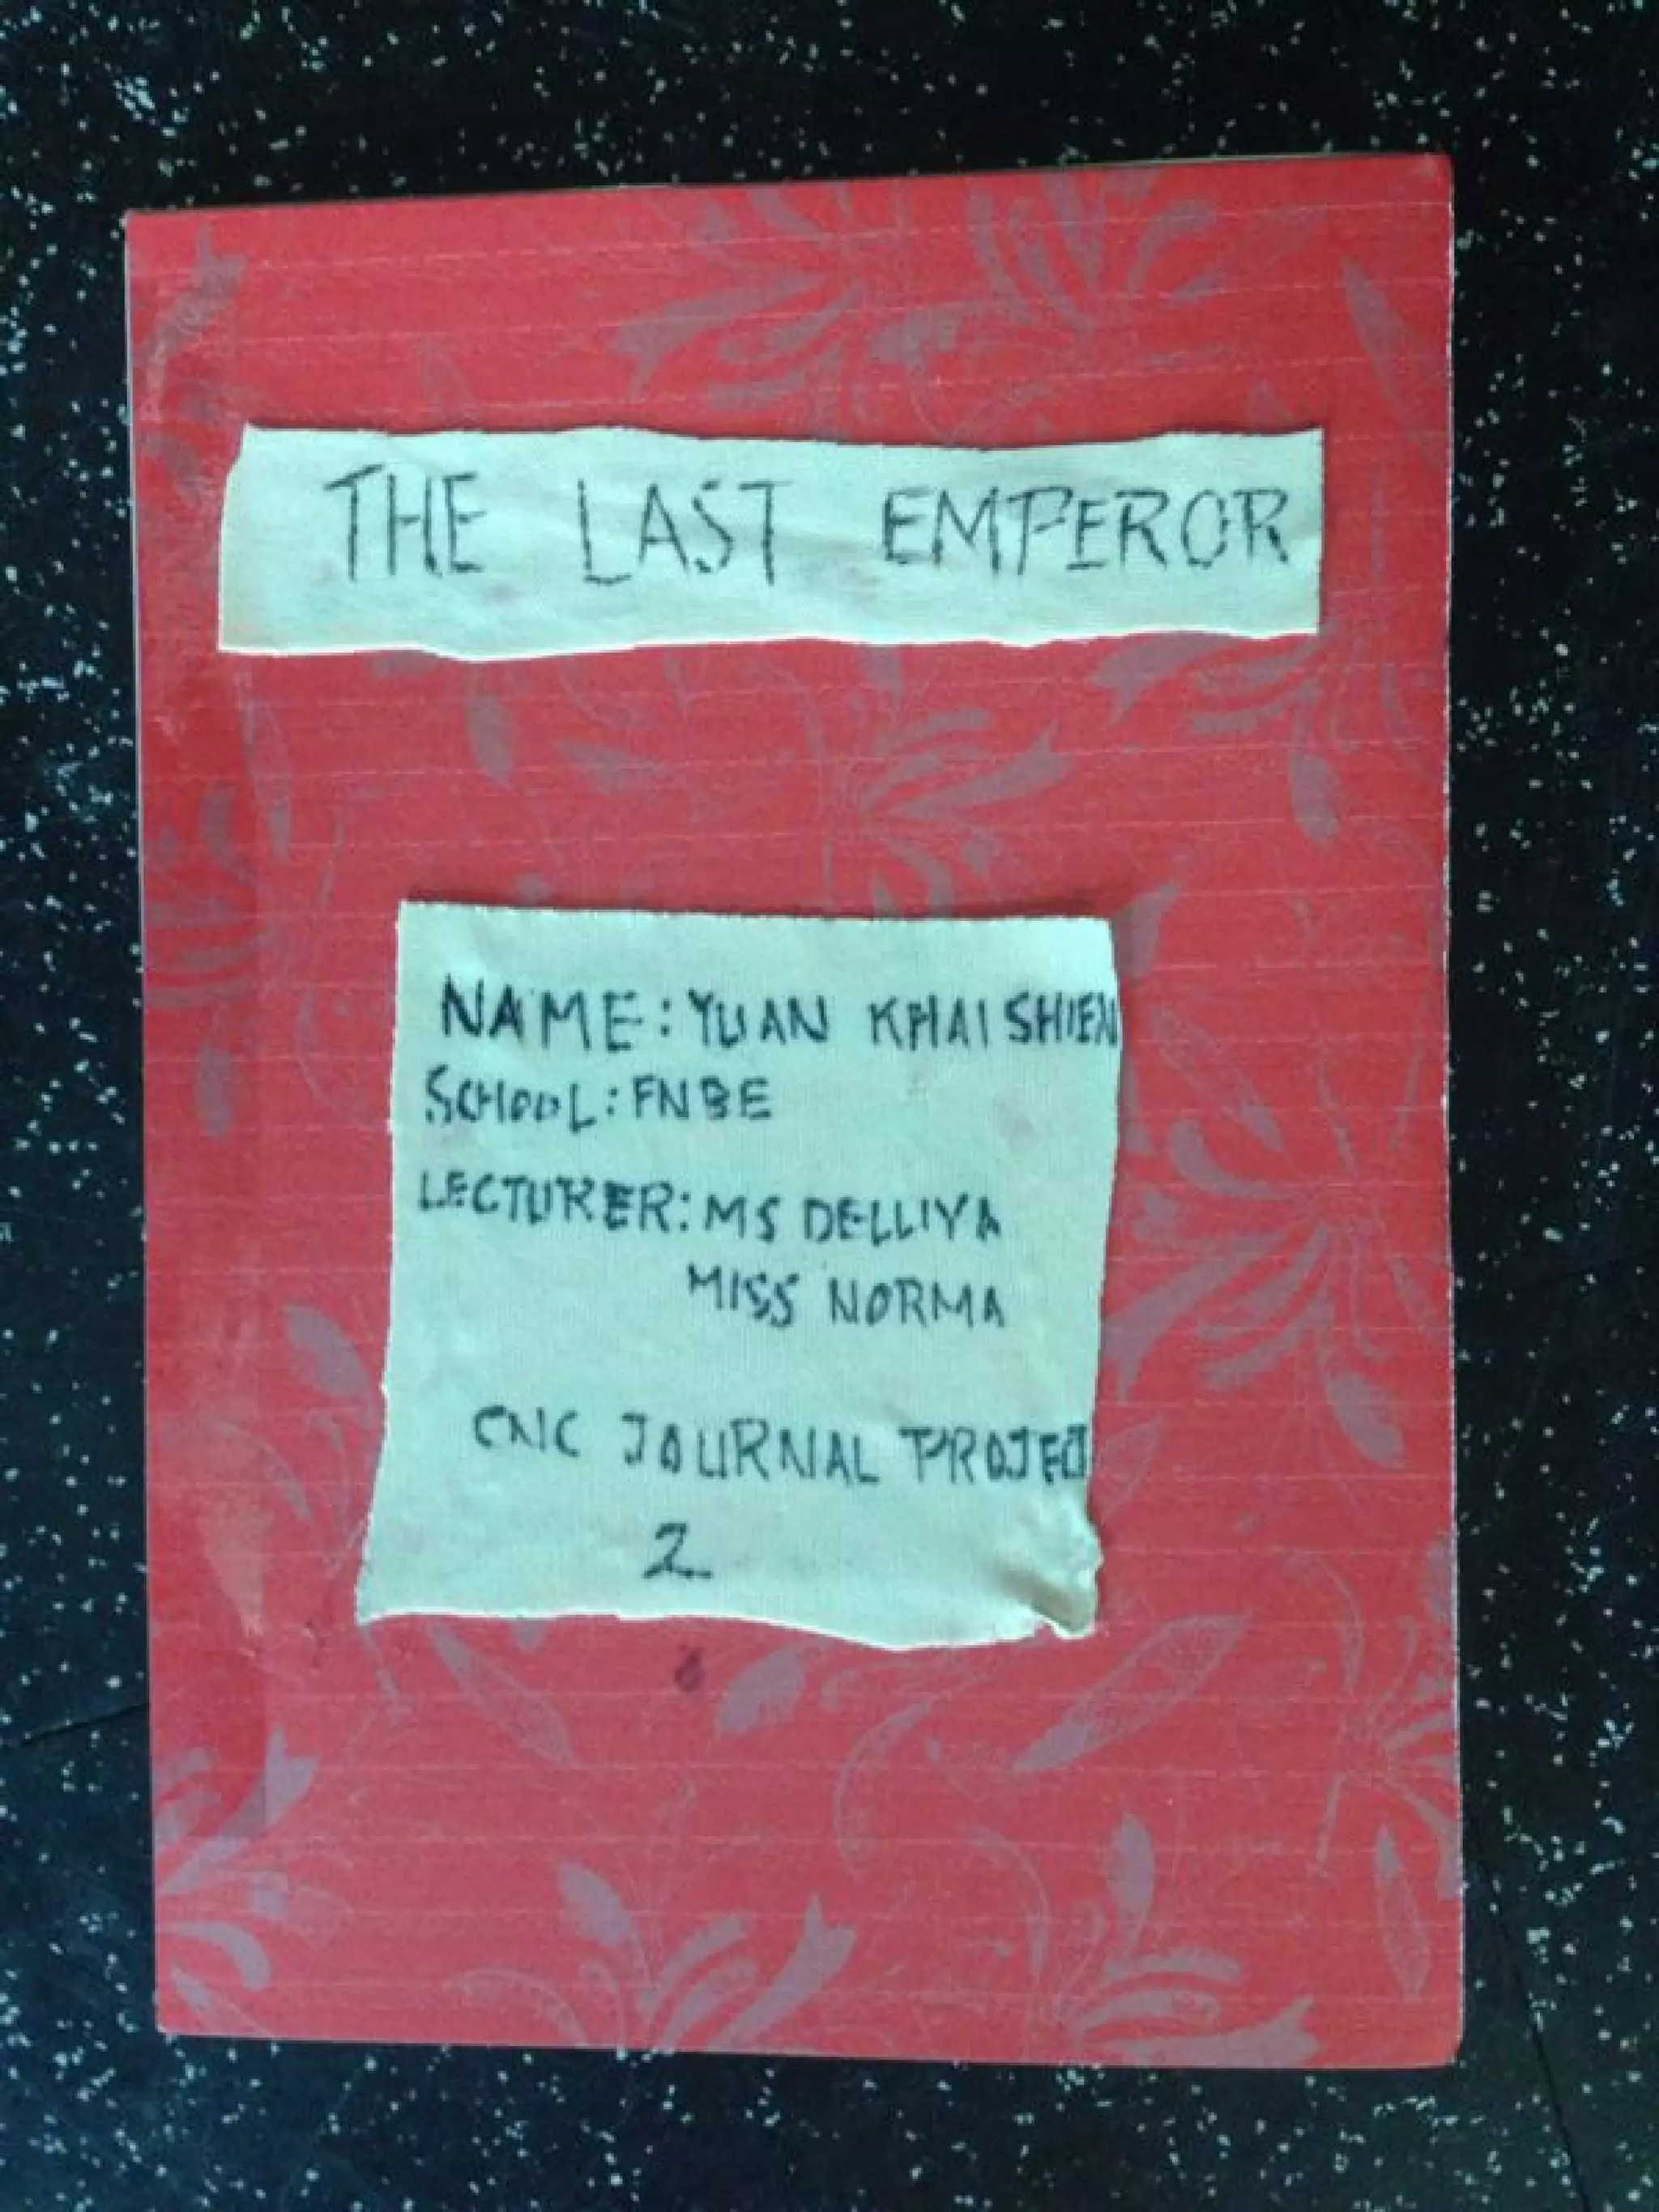 THE LAST EMPEROR
NAME: YUAN KHAI SHIEN
SCHOOL: FNBE
LECTURER: MS DELLIYA
MISS NORMA
CNC JOURNAL PROJECT
2